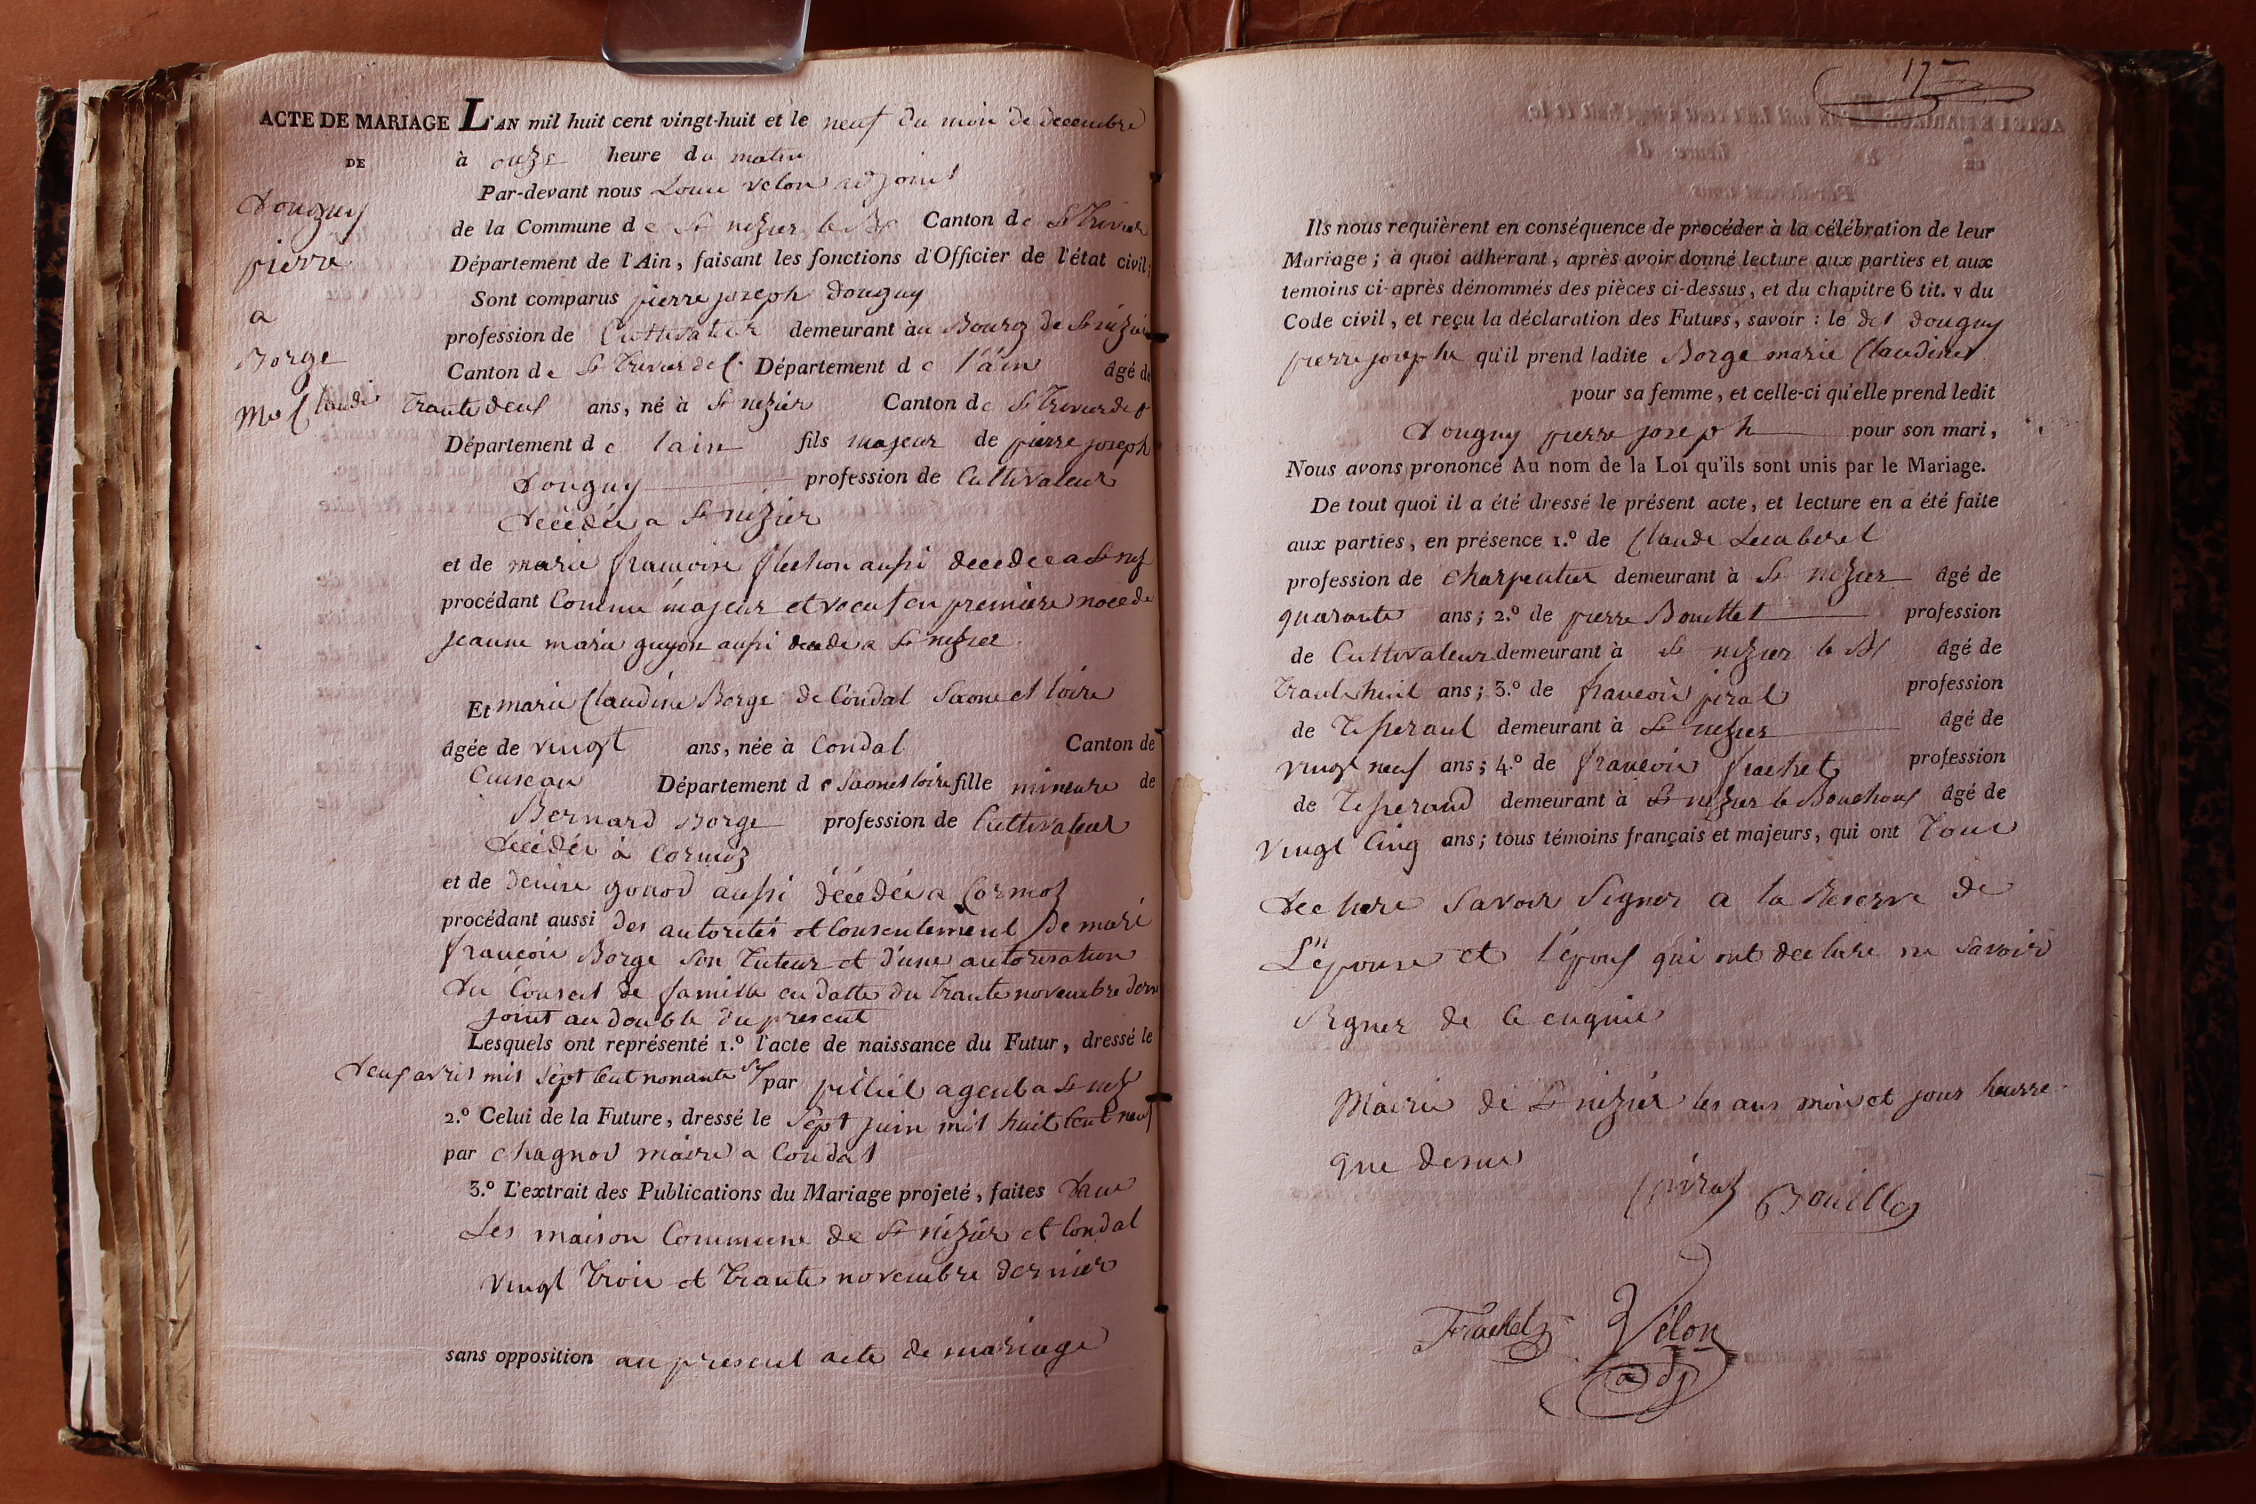 ACTE DE MARIAGE L'AN mil huit cent vingt-huit et le neuf du mois de decembre
DE à onze heure du matin
Par-devant nous Louis velon adjoint
Douguy
de la Commune de St nizier le Bx Canton de St Trivier
pierre
Département de l'Ain, faisant les fonctions d'Officier de l'état civil;
Sont comparus pierre joseph Douguy
a
profession de Cultivateur demeurant àu Bourg de St nizier
Borge
Canton de St Trivier de C. Département de l'áin âgé de
Me Claudi
Trante deux ans, né à St nizier Canton de St Trivier de
Département de lain fils majeur de pierre joseph
Douguy profession de Cultivateur
décédé a St nizier
et de marie francoise flechon aussi decedee a St niz
procédant Comme májeur et veuf en première noce de
jeanne marie guyon aussi decede a St nizier
Et marie Claudine Borge de Condal Saone et loire
âgée de vingt ans, née à Condal Canton de
Cuiseau Département de Saone et loire fille mineure de
Bernard Borge profession de Cultivateur
décédé à Cormoz
et de denise gonod aussi décédée a Cormoz
procédant aussi des autorités et Consentement de mari
françois Borge Son Tuteur et d'une autorisation
du Conseil de famille en datte du trante novembre dern
joint au double du present
Lesquels ont représenté 1.º l'acte de naissance du Futur, dressé le
deux avril mil sept Cent nonante six par pilliet agent a St niz
2.º Celui de la Future, dressé le sept juin mil huit Cent neuf
par chagnod maire a Condal
3.º L'extrait des Publications du Mariage projeté, faites dans
Les maison Commune de St nizier et Condal
vingt trois et trante novembre dernier
sans opposition au present acte de mariage
17
Ils nous requièrent en conséquence de procéder à la célébration de leur
Mariage; à quoi adhérant, après avoir donné lecture aux parties et aux
temoins ci-après dénommés des pièces ci-dessus, et du chapitre 6 tit. v du
Code civil, et reçu la déclaration des Futurs, savoir: le dit Douguy
pierre joseph qu'il prend ladite Borge marie Claudine
pour sa femme, et celle-ci qu'elle prend ledit
Douguy pierre joseph pour son mari,
Nous avons prononcé Au nom de la Loi qu'ils sont unis par le Mariage.
De tout quoi il a été dressé le présent acte, et lecture en a été faite
aux parties, en présence 1.º de Claude
profession de charpentier demeurant à St nizier âgé de
quarante ans; 2.º de pierre Bouillet profession
de Cultivateur demeurant à St nizier le Bx âgé de
trante huit ans; 3.º de francois pirat profession
de Tisserant demeurant à St nizier âgé de
vingt neuf ans; 4.º de francois frachet profession
de Tisserand demeurant à St nizier le Bouchoux âgé de
vingt Cinq ans; tous témoins français et majeurs, qui ont Tous
declare Savoir Signer a la Reserve de
L'épouse et l'époux qui ont declaré ne Savoir
Signer de Ce enquis
Mairie de St nizier les ans mois et jour heurre
que desus
pirat Bouillet
Frachet Vélon
adj